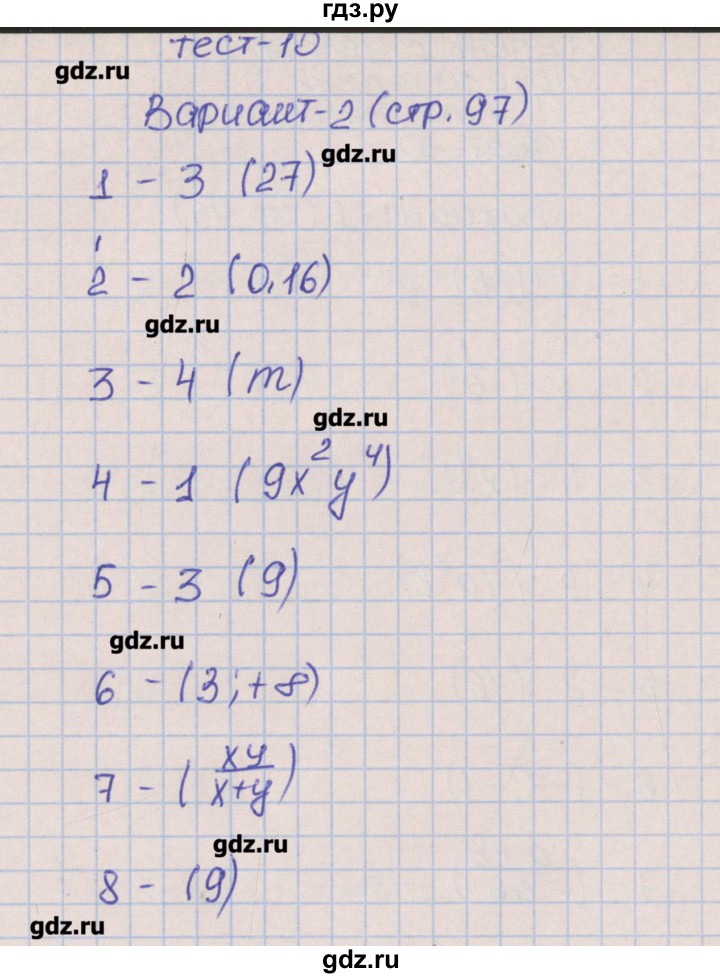 гдз.ру
тест-10
gdz.ru
Вариант-2 (стр. 97)
gdz.ru
1 - 3 (27)
2 - 2 (0,16)
gdz.ru
3 - 4 (m)
gdz.ru
4 - 1 (9x²y⁴)
5 - 3 (9)
gdz.ru
6 - (3; +∞)
7 - (xy/x+y)
gdz.ru
8 - (9)
gdz.ru
gdz.ru